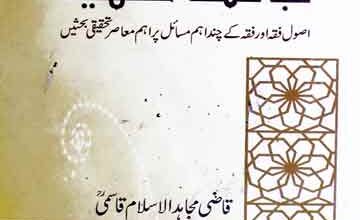 اصول فقہ اور فقہ کے چند اہم مسائل پر اہم معاصر تحقیقی بحثیں
قاضی مجاہد الاسلام قاسمیؒ